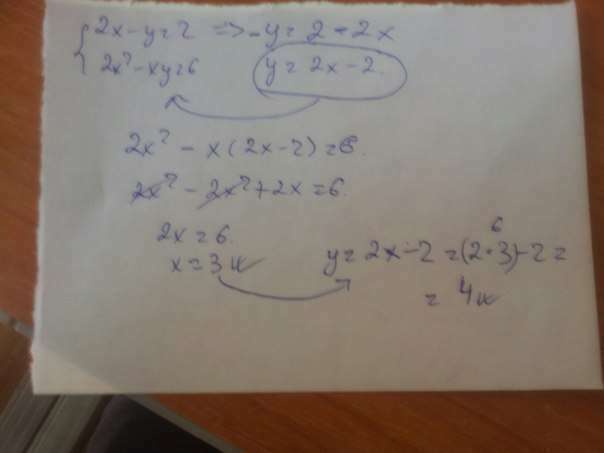 { 2x-y=2 => -y=2-2x
2x²-xy=6 y=2x-2.
2x² - x(2x-2)=6.
2x² - 2x²+2x=6.
2x=6.
x=3
6
y=2x-2=(2·3)-2=
= 4